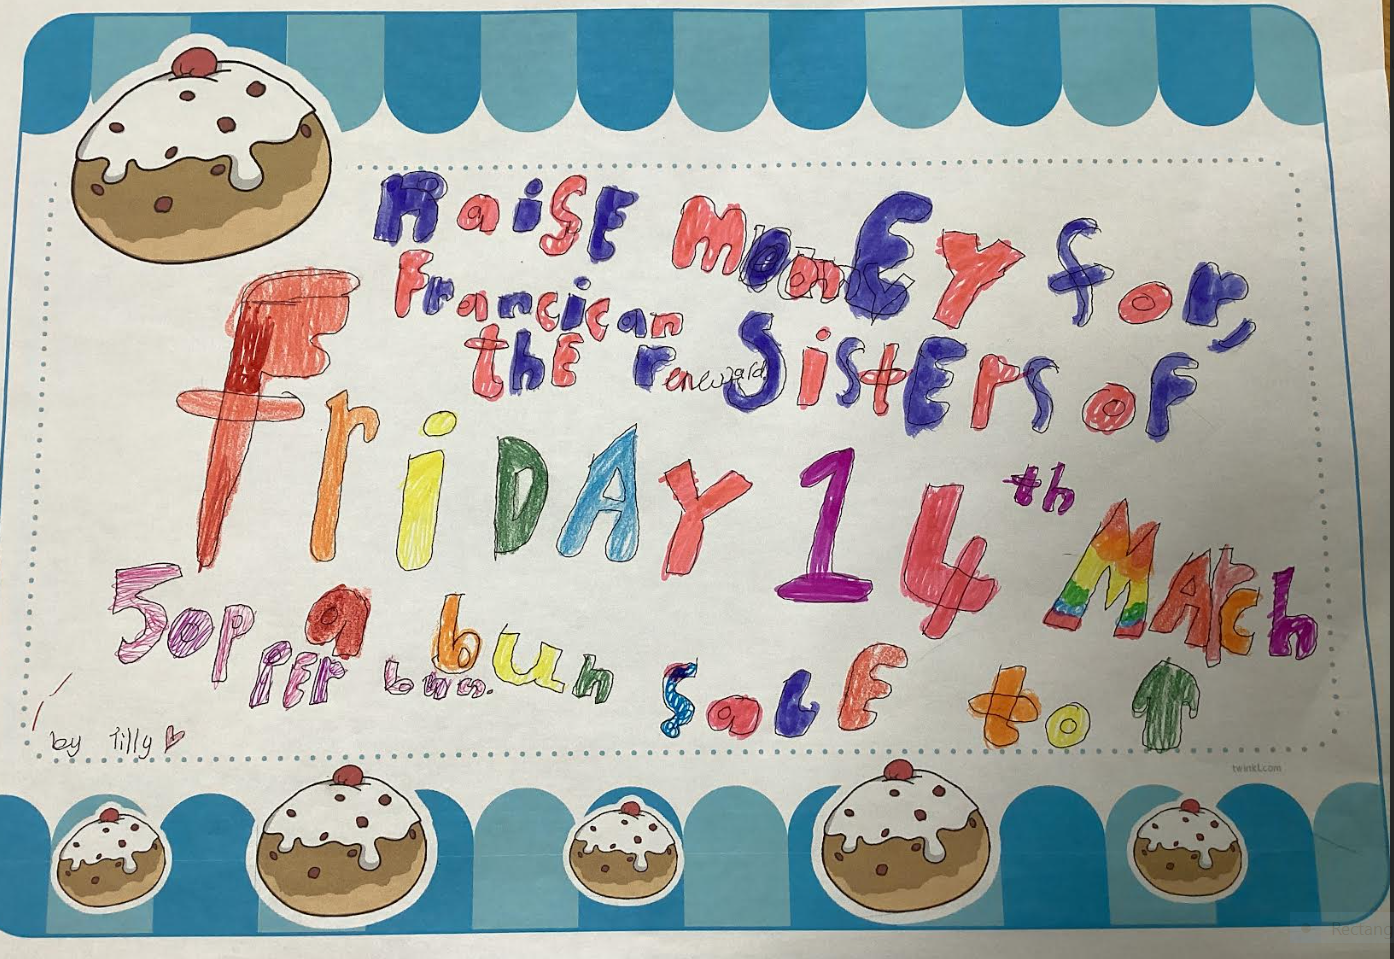 Raise Money for,
Francican Sisters of
the renewgald
Friday 14th March
a bun sale to
50p PER bun.
by Tilly
twinkl.com
Rectang